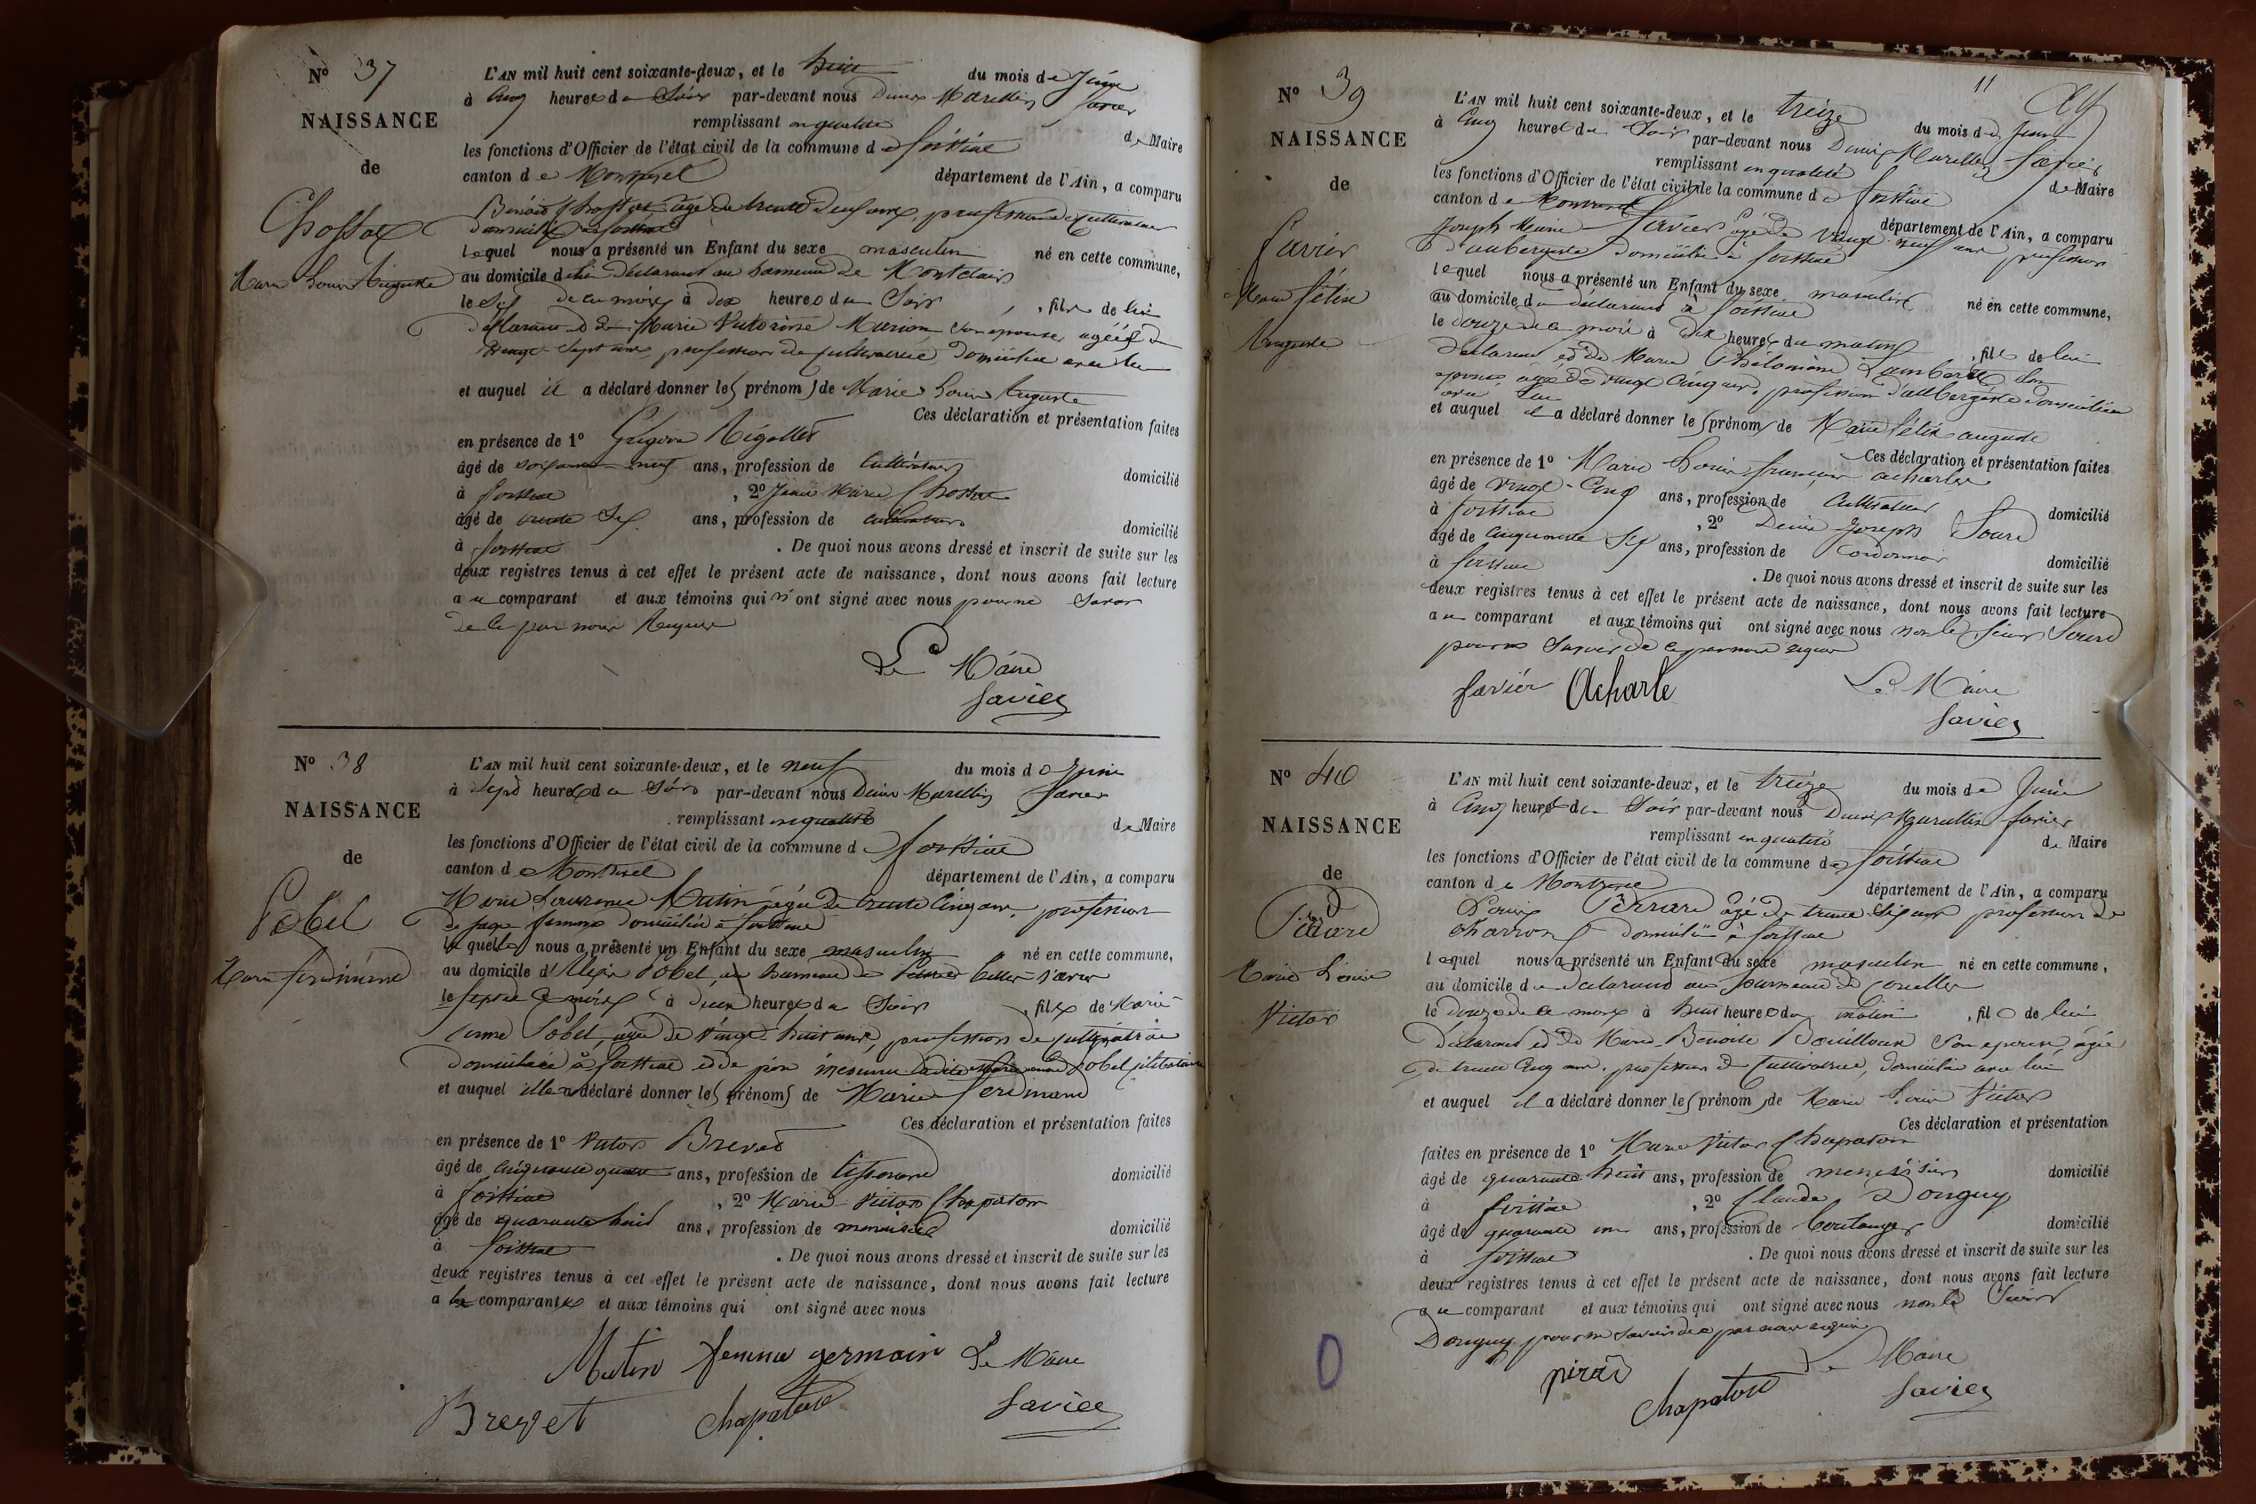 N° 37
NAISSANCE
de
Chossat
Marie Louis Auguste
L'AN mil huit cent soixante-deux, et le huit du mois de Juin
à cinq heures du Soir par-devant nous Denis Marcellin Favier
remplissant en qualité de Maire
les fonctions d'Officier de l'état civil de la commune de foissiat
canton de Montrevel département de l'Ain, a comparu
Benoit Chossat âgé de trente deux ans, profession de Cultivateur
domicilié à foissiat
lequel nous a présenté un Enfant du sexe masculin né en cette commune,
au domicile du déclarant au hameau de Montclair
le Six de ce mois à dix heures du Soir, fils de lui
déclarant et de Marie Victorine Marion son épouse, agée de
vingt-sept ans, profession de cultivatrice, domiciliée avec lui
et auquel il a déclaré donner les prénoms de Marie Louis Auguste
Ces déclaration et présentation faites
en présence de 1° Grégoire Rigollet
âgé de soixante neuf ans, profession de Cultivateur domicilié
à foissiat, 2° Jean Marie Chossat
âgé de trente Six ans, profession de cultivateur domicilié
à foissiat. De quoi nous avons dressé et inscrit de suite sur les
deux registres tenus à cet effet le présent acte de naissance, dont nous avons fait lecture
au comparant et aux témoins qui n'ont signé avec nous pour ne Savoir
de ce par nous Requis
Le Maire
favier
N° 38
NAISSANCE
de
Pobel
Marie ferdinand
L'AN mil huit cent soixante-deux, et le neuf du mois de Juin
à Sept heures du Soir par-devant nous Denis Marcellin Favier
remplissant en qualité de Maire
les fonctions d'Officier de l'état civil de la commune de foissiat
canton de Montrevel département de l'Ain, a comparu
Marie Laurence Mutin âgée de trente Cinq ans, profession
de sage femme domiciliée à foissiat
laquelle nous a présenté un Enfant du sexe masculin né en cette commune,
au domicile d'Alexis Pobel, au hameau de
le sept de ce mois à heures du Soir, fils de Marie
Pobel, âgée de vingt-huit ans, profession de cultivatrice
domiciliée à foissiat et de père inconnu Pobel célibataire
et auquel elle a déclaré donner les prénoms de Marie ferdinand
Ces déclaration et présentation faites
en présence de 1° Victor Brevet
âgé de cinquante quatre ans, profession de tisserand domicilié
à foissiat, 2° Marie Victor Chapaton
âgé de quarante huit ans, profession de menuisier domicilié
à foissiat. De quoi nous avons dressé et inscrit de suite sur les
deux registres tenus à cet effet le présent acte de naissance, dont nous avons fait lecture
a la comparante et aux témoins qui ont signé avec nous
Mutin femme germain Le Maire
Brevet chapaton favier
11
N° 39
NAISSANCE
de
Favier
Marie félix
Auguste
L'AN mil huit cent soixante-deux, et le treize du mois de Juin
à Cinq heures du Soir par-devant nous Denis Marcellin Favier
remplissant en qualité de Maire
les fonctions d'Officier de l'état civil de la commune de foissiat
canton de Montrevel département de l'Ain, a comparu
Joseph Marie Favier âgé de vingt neuf ans profession
d'aubergiste domicilié à foissiat
lequel nous a présenté un Enfant du sexe masculin né en cette commune,
au domicile du déclarant à foissiat
le douze de ce mois à dix heures du matin, fils de lui
déclarant et de Marie Philomène Lambert son
épouse âgée de vingt Cinq ans, profession d'aubergiste domiciliée
avec lui
et auquel il a déclaré donner les prénoms de Marie félix auguste
Ces déclaration et présentation faites
en présence de 1° Marie Louis françois acharle
âgé de vingt-Cinq ans, profession de Cultivateur domicilié
à foissiat, 2° Denis Joseph Sourd
âgé de Cinquante Six ans, profession de Cordonnier domicilié
à foissiat. De quoi nous avons dressé et inscrit de suite sur les
deux registres tenus à cet effet le présent acte de naissance, dont nous avons fait lecture
au comparant et aux témoins qui ont signé avec nous non le Sieur Sourd
pour ne Savoir de ce par nous requis
favier Acharle Le Maire
favier
N° 40
NAISSANCE
de
Marie Louis
Victor
L'AN mil huit cent soixante-deux, et le treize du mois de Juin
à Cinq heures du Soir par-devant nous Denis Marcellin favier
remplissant en qualité de Maire
les fonctions d'Officier de l'état civil de la commune de foissiat
canton de Montrevel département de l'Ain, a comparu
Louis âgé de trente Six ans profession de
charron domicilié à foissiat
lequel nous a présenté un Enfant du sexe masculin né en cette commune,
au domicile du déclarant au hameau de
le douze de ce mois à huit heures du matin, fils de lui
déclarant et de Marie Benoite Bouilloux Son épouse, âgée
de trente Cinq ans, profession de Cultivatrice, domiciliée avec lui
et auquel il a déclaré donner les prénoms de Marie Louis Victor
Ces déclaration et présentation
faites en présence de 1° Marie Victor Chapaton
âgé de quarante huit ans, profession de menuisier domicilié
à foissiat, 2° Claude Donguy
âgé de quarante un ans, profession de boulanger domicilié
à foissiat. De quoi nous avons dressé et inscrit de suite sur les
deux registres tenus à cet effet le présent acte de naissance, dont nous avons fait lecture
au comparant et aux témoins qui ont signé avec nous non le Sieur
Donguy pour ne Savoir de ce par nous requis
Le Maire
chapaton favier